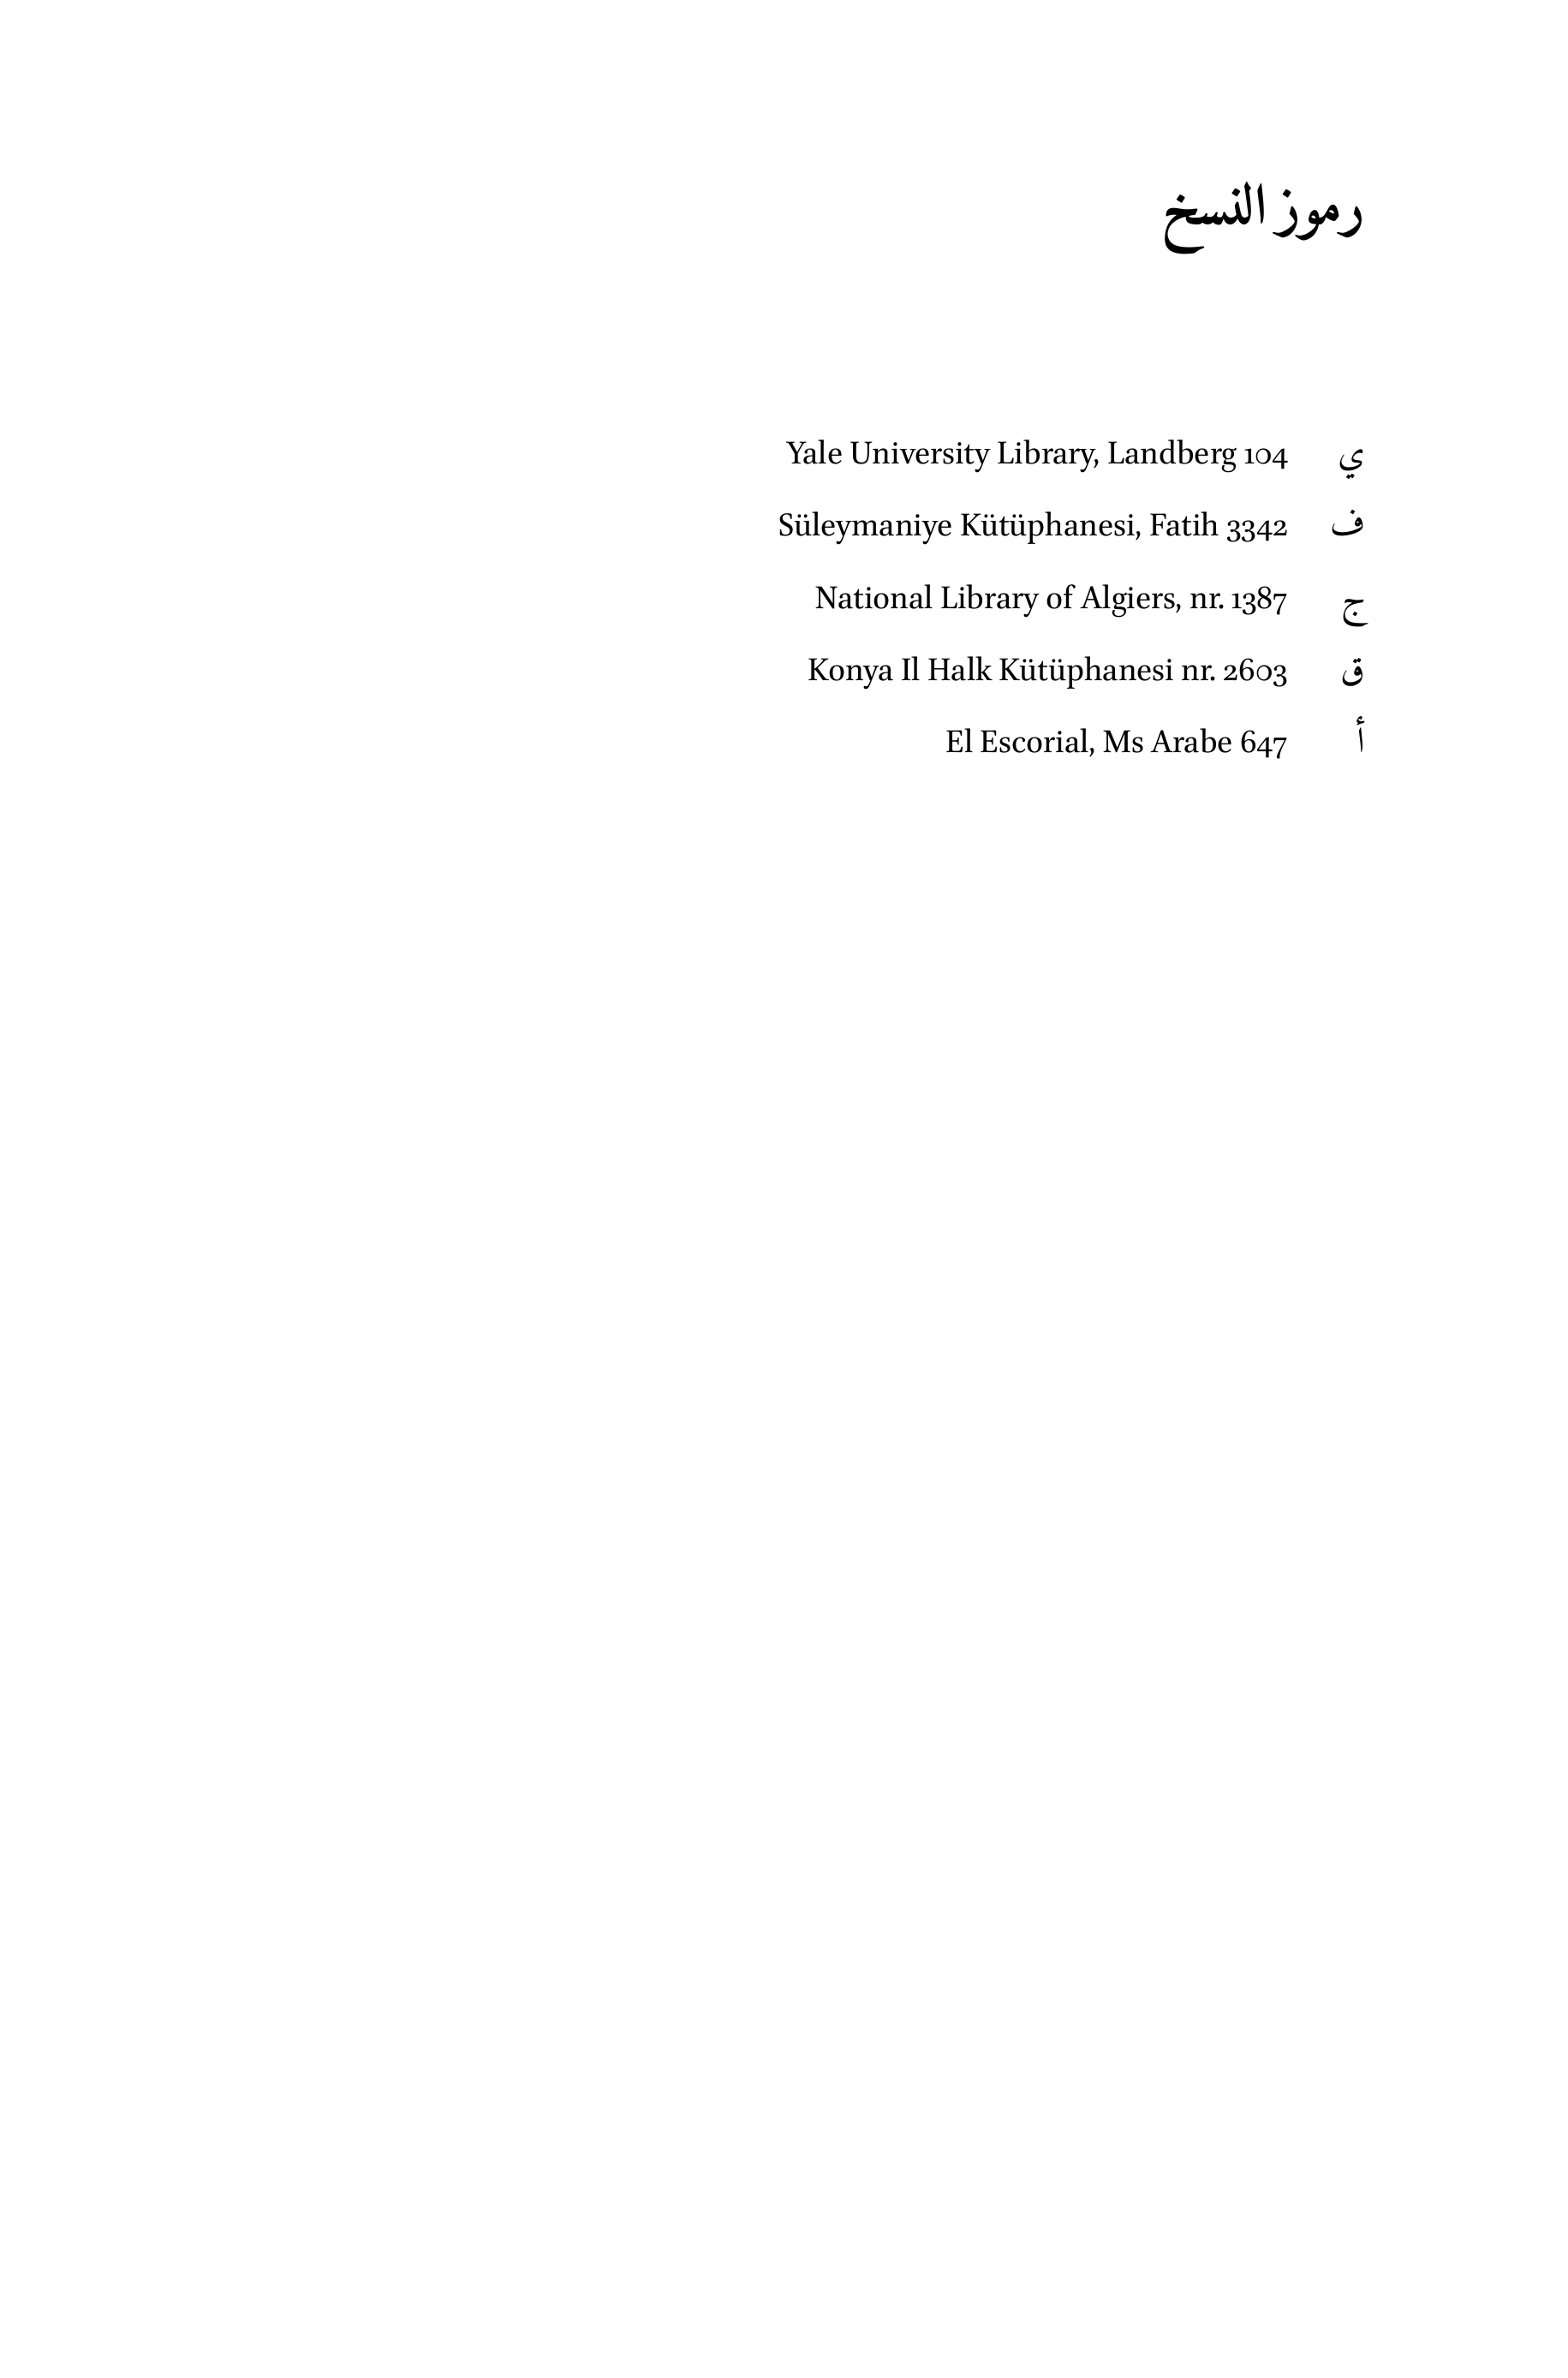 رموز النسخ
ي Yale University Library, Landberg 104
ف Süleymaniye Kütüphanesi, Fatih 3342
ج National Library of Algiers, nr. 1387
ق Konya Il Halk Kütüphanesi nr. 2603
أ El Escorial, Ms Arabe 647